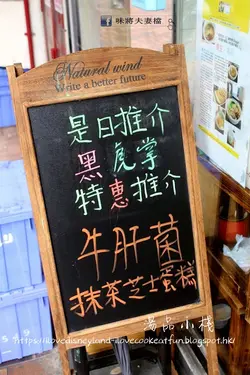 味將夫妻檔
Natural wind
Write a better future
是日推介
黑虎掌
特惠推介
牛肝菌
抹茶芝士蛋糕
湯品小棧
https://ilovedisneyland-ilovecookeatfun.blogspot.hk/